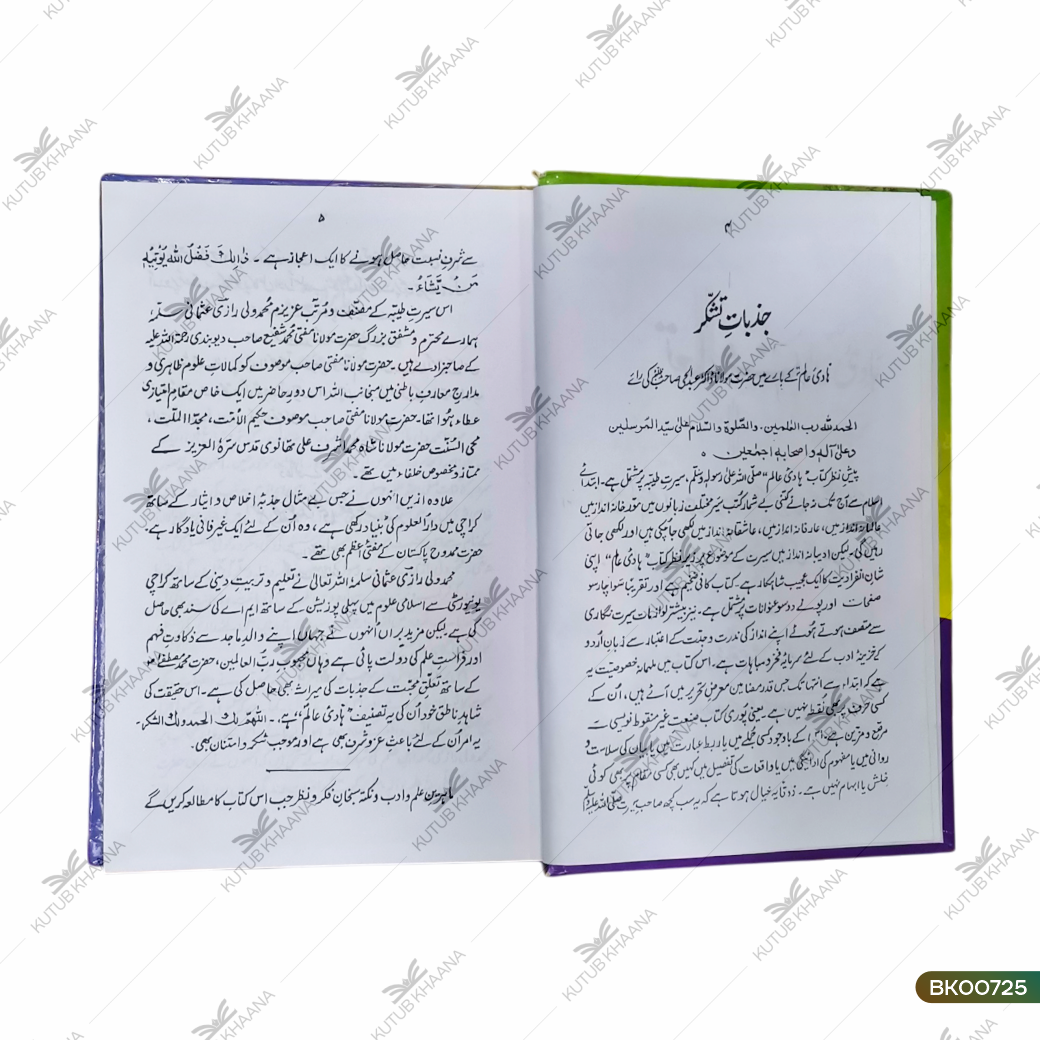 ۴
جذباتِ تشکّر
ہادیٔ عالمؐ کے بارے میں حضرت مولانا ڈاکٹر عبدالحیٔ صاحب مدظلہٗ کی رائے
الحمد للہ رب العلمین۔ والصّلوۃ والسّلام علیٰ سیّد المرسلین
وعلیٰ آلہٖ واصحابہٖ اجمعین ٥
پیش نظر کتاب "ہادیٔ عالم" صلی اللہ علیٰ رسولہٖ وسلّم، سیرتِ طیبّہ پر مشتمل ہے۔ ابتدائے
اسلام سے آج تک نہ جانے کتنی بے شمار کتب سِیَر مختلف زبانوں میں مؤرخانہ انداز میں
عالمانہ انداز میں، عارفانہ انداز میں، عاشقانہ انداز میں لکھی جا چکی ہیں اور لکھی جاتی
رہیں گی۔ لیکن ادیبانہ انداز میں سیرت کے موضوع پر زیرِ نظر کتاب "ہادیٔ عالم" اپنی
شانِ انفرادیت کا ایک عجیب شاہکار ہے۔ کتاب کافی ضخیم ہے اور تقریباً سوا چار سو
صفحات اور پونے دو سو عنوانات پر مشتمل ہے۔ نیز بیشتر لوازماتِ سیرت نگاری
سے متصف ہوتے ہوئے اپنے انداز کی ندرت و جدّت کے اعتبار سے زبانِ اُردو
کے خزینۂ ادب کے لئے سرمایۂ فخر و مباہات ہے۔ اس کتاب میں ملہمانہ خصوصیت یہ
ہے کہ ابتداء سے انتہا تک جس قدر مضامین معرضِ تحریر میں آئے ہیں، اُن کے
کسی حرف پر بھی نقطہ نہیں ہے۔ یعنی پُوری کتاب صنعتِ غیر منقوط نویسی سے
مرقع و مزین ہے۔ اس کے باوجود کسی جُملے میں یا ربط عبارت میں یا بیان کی سلاست و
روانی میں یا مفہوم کی ادائیگی میں یا واقعات کی تفصیل میں کہیں بھی کسی مقام پر بھی کوئی
خلش یا ابہام نہیں ہے۔ ذوقانہ خیال ہوتا ہے کہ یہ سب کچھ صاحبِ سیرت صلی اللہ علیہ وسلم
۵
سے شرفِ نسبت حاصل ہونے کا ایک اعجاز ہے۔ ذٰلِكَ فَضْلُ اللهِ يُؤْتِيْهِ
مَنْ يَّشَاءُ۔
اس سیرتِ طیبّہ کے مصنّف و مُرتّب عزیزم محمد ولی رازی عثمانی سلّمہ،
ہمارے محترم و مشفق بزرگ حضرت مولانا مفتی محمد شفیع صاحب دیوبندی رحمۃ اللہ علیہ
کے صاحبزادے ہیں۔ حضرت مولانا مفتی صاحب موصوف کو کمالاتِ علوم ظاہری و
مدارجِ معارفِ باطنی میں منجانب اللہ اس دورِ حاضر میں ایک خاص مقامِ امتیازی
عطاء ہوا تھا۔ حضرت مولانا مفتی صاحب موصوف حکیم الاُمت، مجدّد الملّت،
محی السُنّت حضرت مولانا شاہ محمد اشرف علی تھانوی قدس سرّہٗ العزیز کے
ممتاز و مخصوص خلفاء میں تھے۔
علاوہ ازیں انہوں نے جس بے مثال جذبۂ اخلاص و ایثار کے ساتھ
کراچی میں دارُالعلوم کی بنیاد رکھی ہے، وہ اُن کے لئے ایک غیر فانی یادگار ہے۔
حضرت ممدوح پاکستان کے مفتیٔ اعظم بھی تھے۔
محمد ولی رازی عثمانی سلّمہٗ اللہ تعالیٰ نے تعلیم و تربیتِ دینی کے ساتھ کراچی
یونیورسٹی سے اسلامی علوم میں پہلی پوزیشن کے ساتھ ایم اے کی سند بھی حاصل
کی ہے لیکن مزید براں اُنھوں نے جہاں اپنے والد ماجد سے ذکاوت فہم
اور فراستِ علم کی دولت پائی ہے وہاں محبوب ربّ العالمین، حضرت محمد مصطفےٰ
کے ساتھ تعلّق محبّت کے جذبات کی میراث بھی حاصل کی ہے۔ اس حقیقت کی
شاہد ناطق خود اُن کی یہ تصنیف "ہادیٔ عالم" ہے،۔ اللّٰھمّ لك الحمد ولك الشکر۔
یہ امر اُن کے لئے باعثِ عز و شرف بھی ہے اور موجب شُکر و امتنان بھی۔
ماہرین علم و ادب و نکتہ سنجان فکر و نظر جب اس کتاب کا مطالعہ کریں گے
KUTUB KHAANA
BK00725